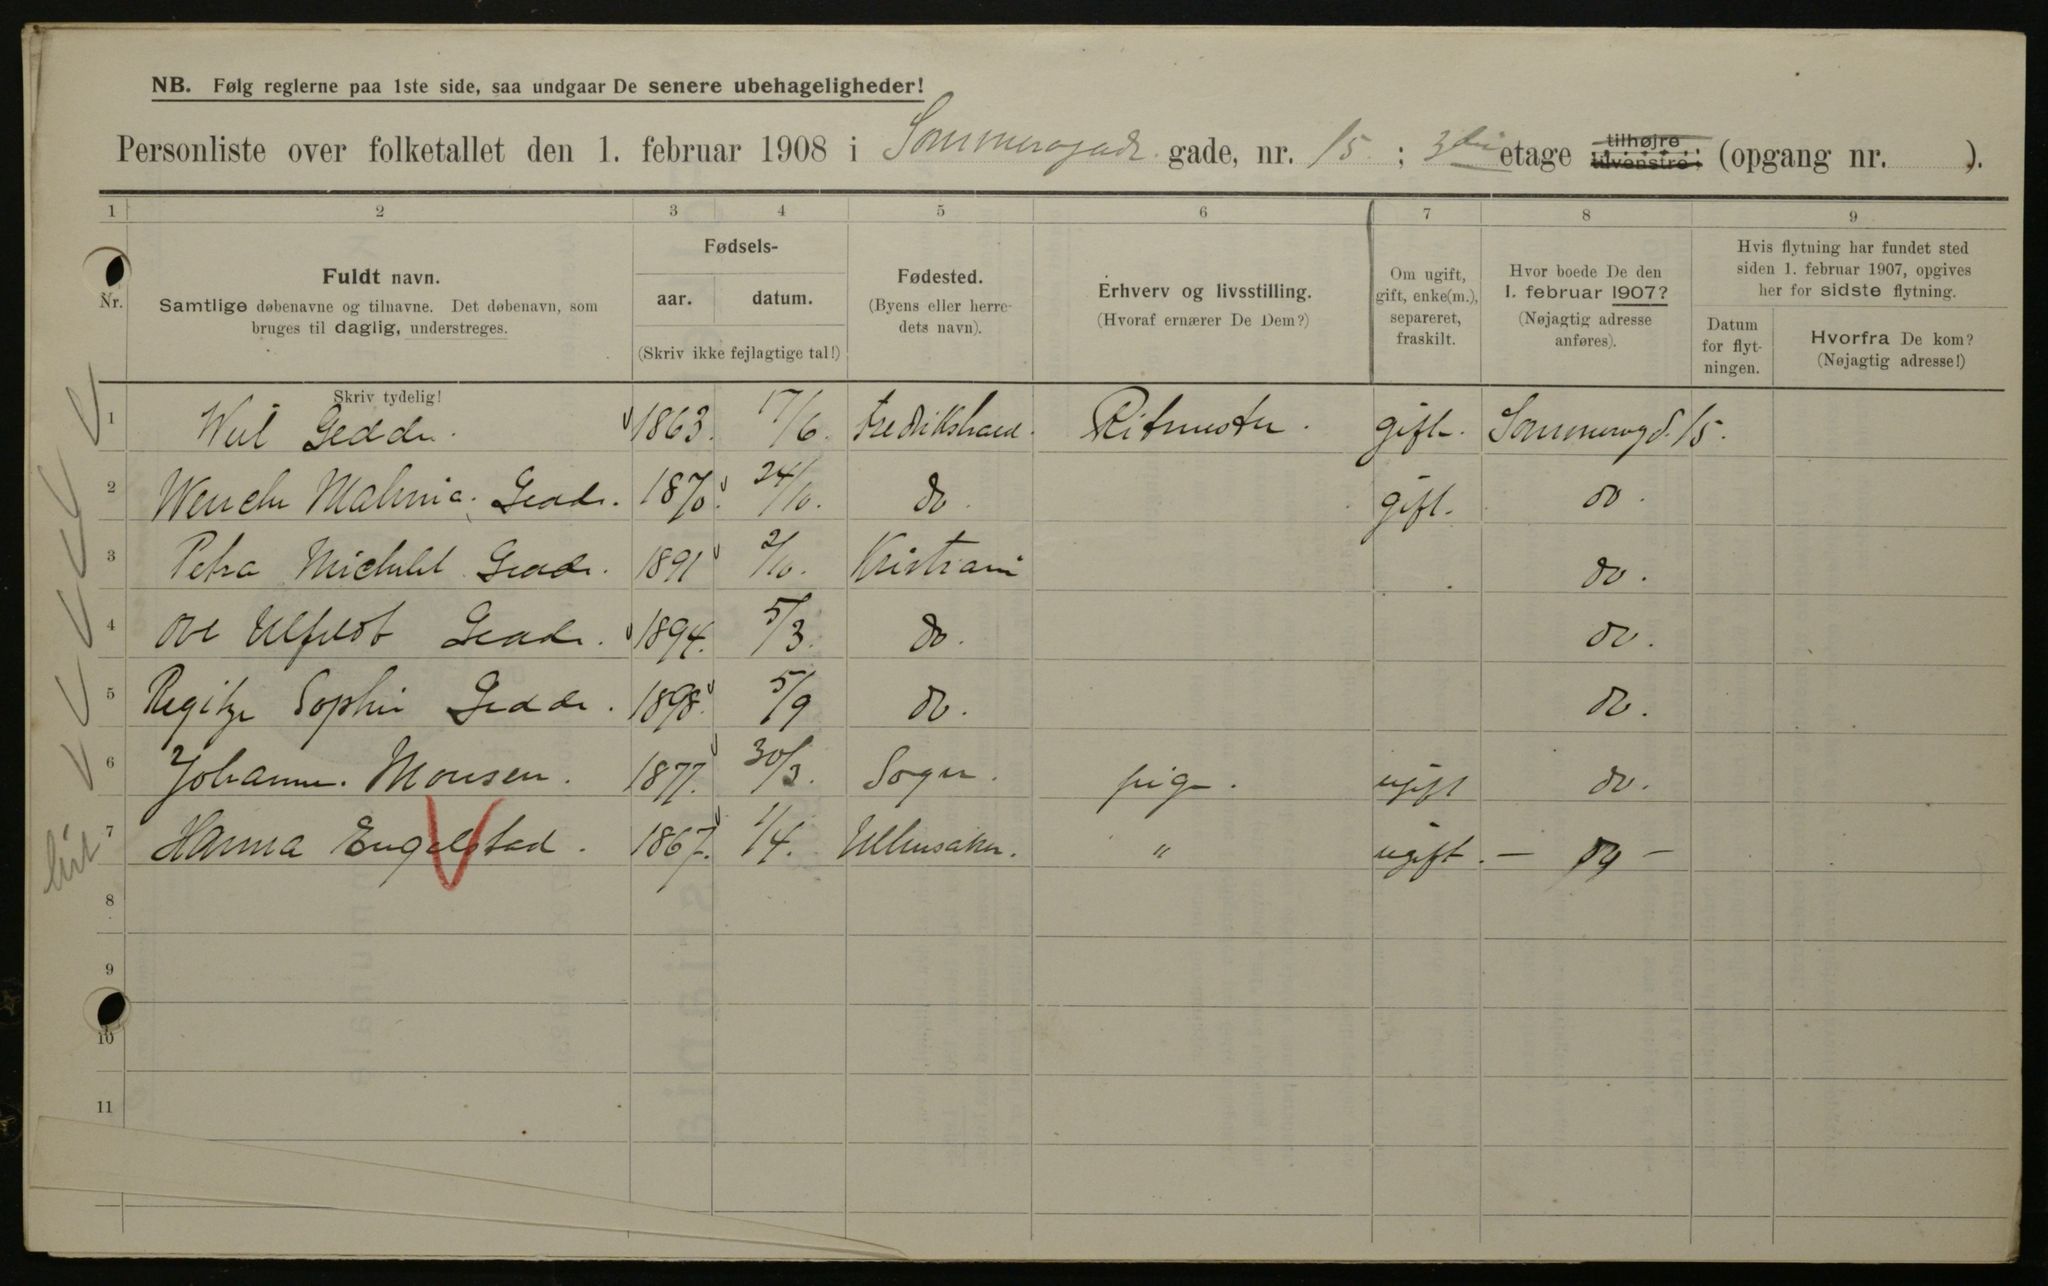 NB. Følg reglerne paa 1ste side, saa undgaar De senere ubehageligheder!
Personliste over folketallet den 1. februar 1908 i Sommerogade gade, nr. 15 ; 3die etage tilhøjre tilvenstre (opgang nr. ).
1 2 3 4 5 6 7 8 9
Nr.
Fuldt navn.
Samtlige døbenavne og tilnavne. Det døbenavn, som
bruges til daglig, understreges.
Fødsels-
aar. datum.
(Skriv ikke fejlagtige tal!)
Fødested.
(Byens eller herre-
dets navn).
Erhverv og livsstilling.
(Hvoraf ernærer De Dem?)
Om ugift,
gift, enke(m.),
separeret,
fraskilt.
Hvor boede De den
1. februar 1907?
(Nøjagtig adresse
anføres).
Hvis flytning har fundet sted
siden 1. februar 1907, opgives
her for sidste flytning.
Datum
for flyt-
ningen.
Hvorfra De kom?
(Nøjagtig adresse!)
Skriv tydelig!
1 Gedde. 1863. 17/6. Fredrikshald. Ritmester. gift. Sommerogd. 15.
2 Wenche Gedde. 1870. 24/10. do. gift. do.
3 Petra Michelet Gedde. 1891 2/10. Kristiani do.
4 Ove Ulfeldt Gedde. 1894. 5/3. do. do.
5 Regitze Sophie Gedde. 1898. 5/9 do. do.
6 Johanne. Monsen. 1877. 30/3. Sogn. pige. ugift do.
7 Hanna Engelstad. 1867. 1/4. Ullensaker. " ugift. — do —
8
9
10
11